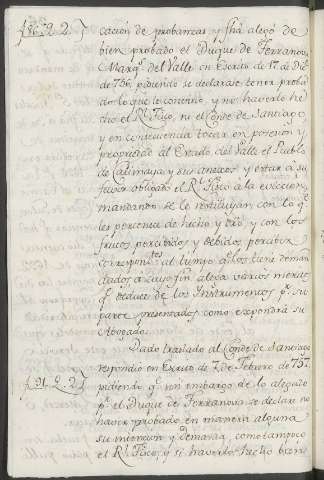 cacion de probanzas y fha alegó de
bien probado el Duque de Terranova
Marq.s del Valle en Escrito de 17 de Dic.
de 756 pidiendo se declarase tener proba
do lo que le convino, y no haverlo he
cho el R.l Fisco, ni el Conde de Santiago
y en consecuencia tocar en posesion y
propriedad al Estado del Valle el Pueblo
de Calimaya y sus anexos y estar à su
favor obligado el R.l Fisco à la eviccion
mandando se le restituyan, con lo q.e
les pertenece de hecho y dro, y con los
frutos percibidos y debidos percibir
correspond.tes al tiempo
à cuyo fin alega varios
q.e deduce de los Instrumentos p.r su
parte presentados como expondrá su
Abogado.
Dado traslado al Conde de Santiago
respondió en Escrito de de Febrero de 757
pidiendo q.e sin embargo de lo alegado
p.r el Duque de Terranova se declare no
haver probado en manera alguna
su intencion y demanda, como tampoco
el R.l Fisco, y si haverlo hecho bien